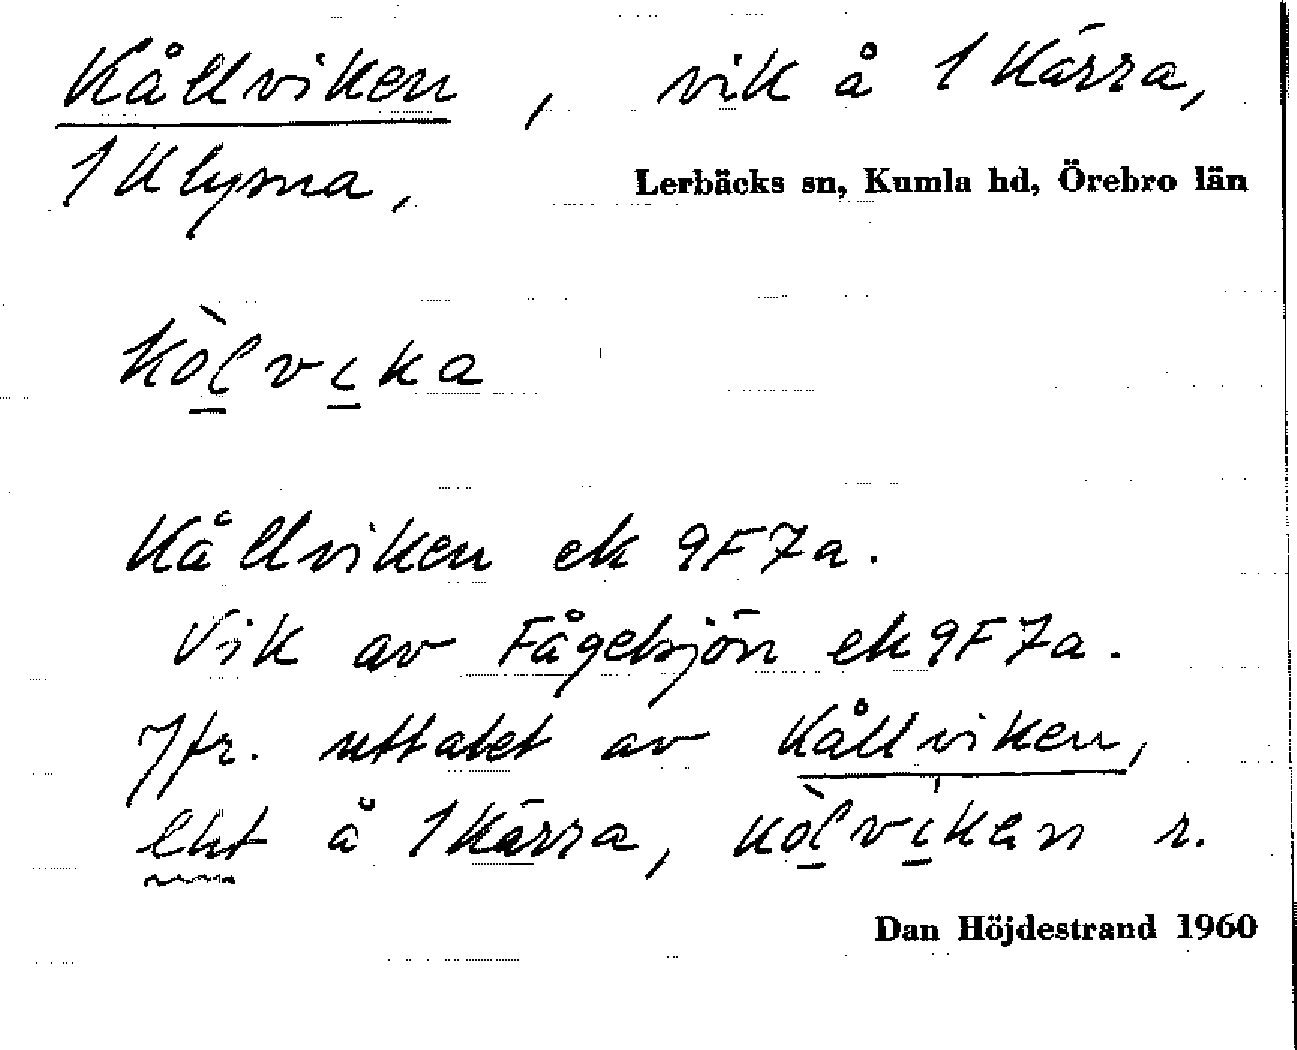 Kållviken, vik å 1 Kärra,
1 Klysna,
Lerbäcks sn, Kumla hd, Örebro län
kòlvika
Kållviken ek 9F7a.
Vik av Fågelsjön ek 9F7a.
Jfr. uttalet av Kållviken,
lht å 1 Kärra, kòlvikan r.
Dan Höjdestrand 1960